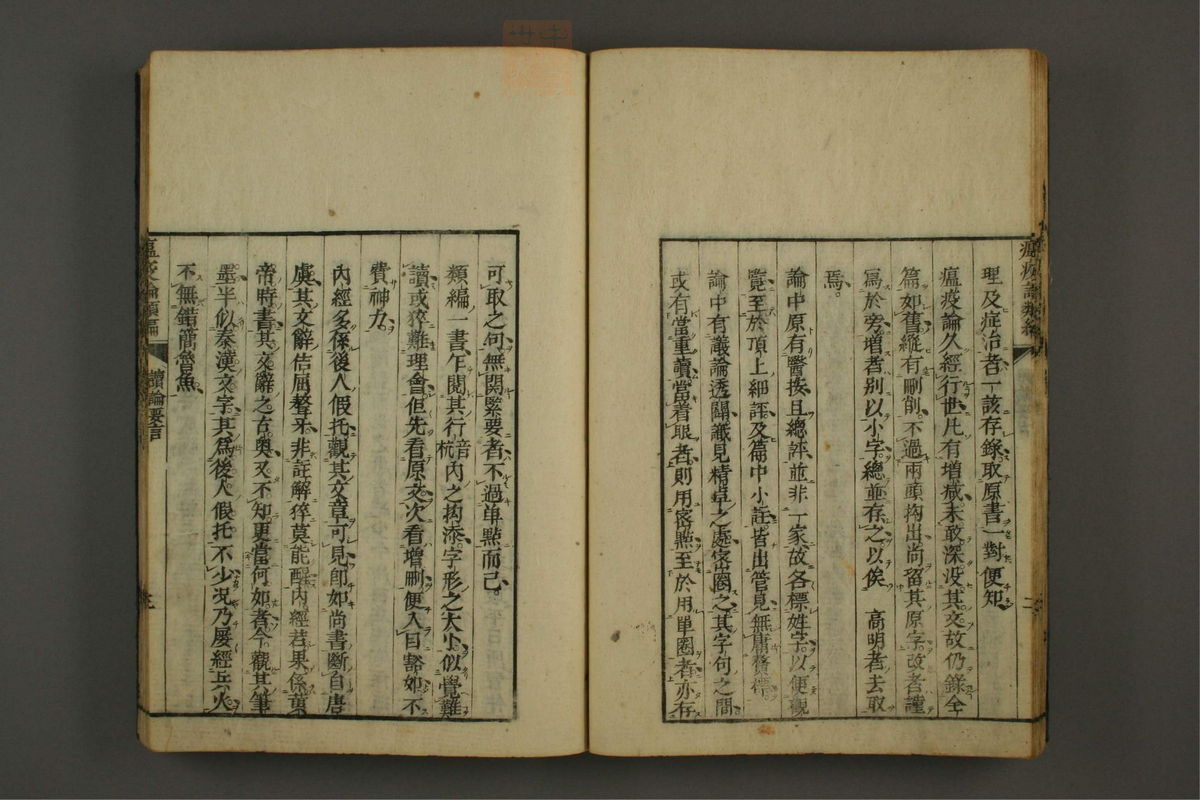 理及症治者一該存錄取原書一對便知
瘟疫論久經行世凡有增減未敢深没其文故仍錄全
篇如舊縱有刪削不過兩頭抅出尚留其原字改者謹
爲於旁增者别以小字總並存之以俟 高明者去取
焉
論中原有醫按且總評並非一家故各標姓字以便觀
覽至於頂上細評及篇中小註皆出管見無庸贅標
論中有議論透闢識見精卓之處密圈之其字句之間
或有當重讀當着眼者則用密㸃至於用單圈者亦存
可取之句無關緊要者不過单㸃而已
類編一書乍閱其行音杭內之抅添字形之大小似覺難
讀或猝難理會但先看原文次看增刪便入目豁如不
費神力
內經多係後人假托觀其文章可見卽如尚書斷自唐
虞其文辭佶屈聱牙非註解猝莫能醒內經若果係黃
帝時書其文辭之古奧又不知更當何如者今觀其筆
墨半似秦漢文字其爲後人假托不少况乃屡經兵火
不無錯簡魯魚
瘟疫論類編 讀論要言